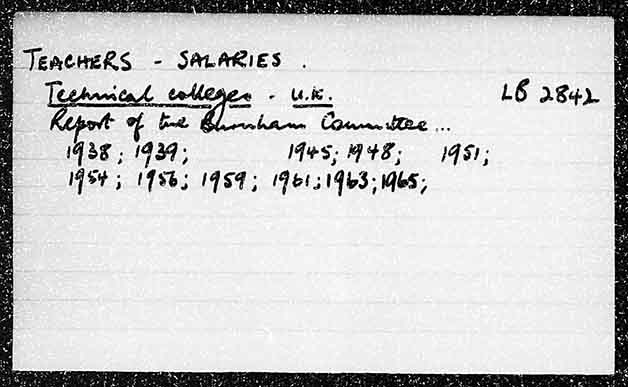 TEACHERS - SALARIES.
Technical colleges - U.K. LB 2842
Report of the Burnham Committee...
1938; 1939; 1945; 1948; 1951;
1954; 1956; 1959; 1961; 1963; 1965;